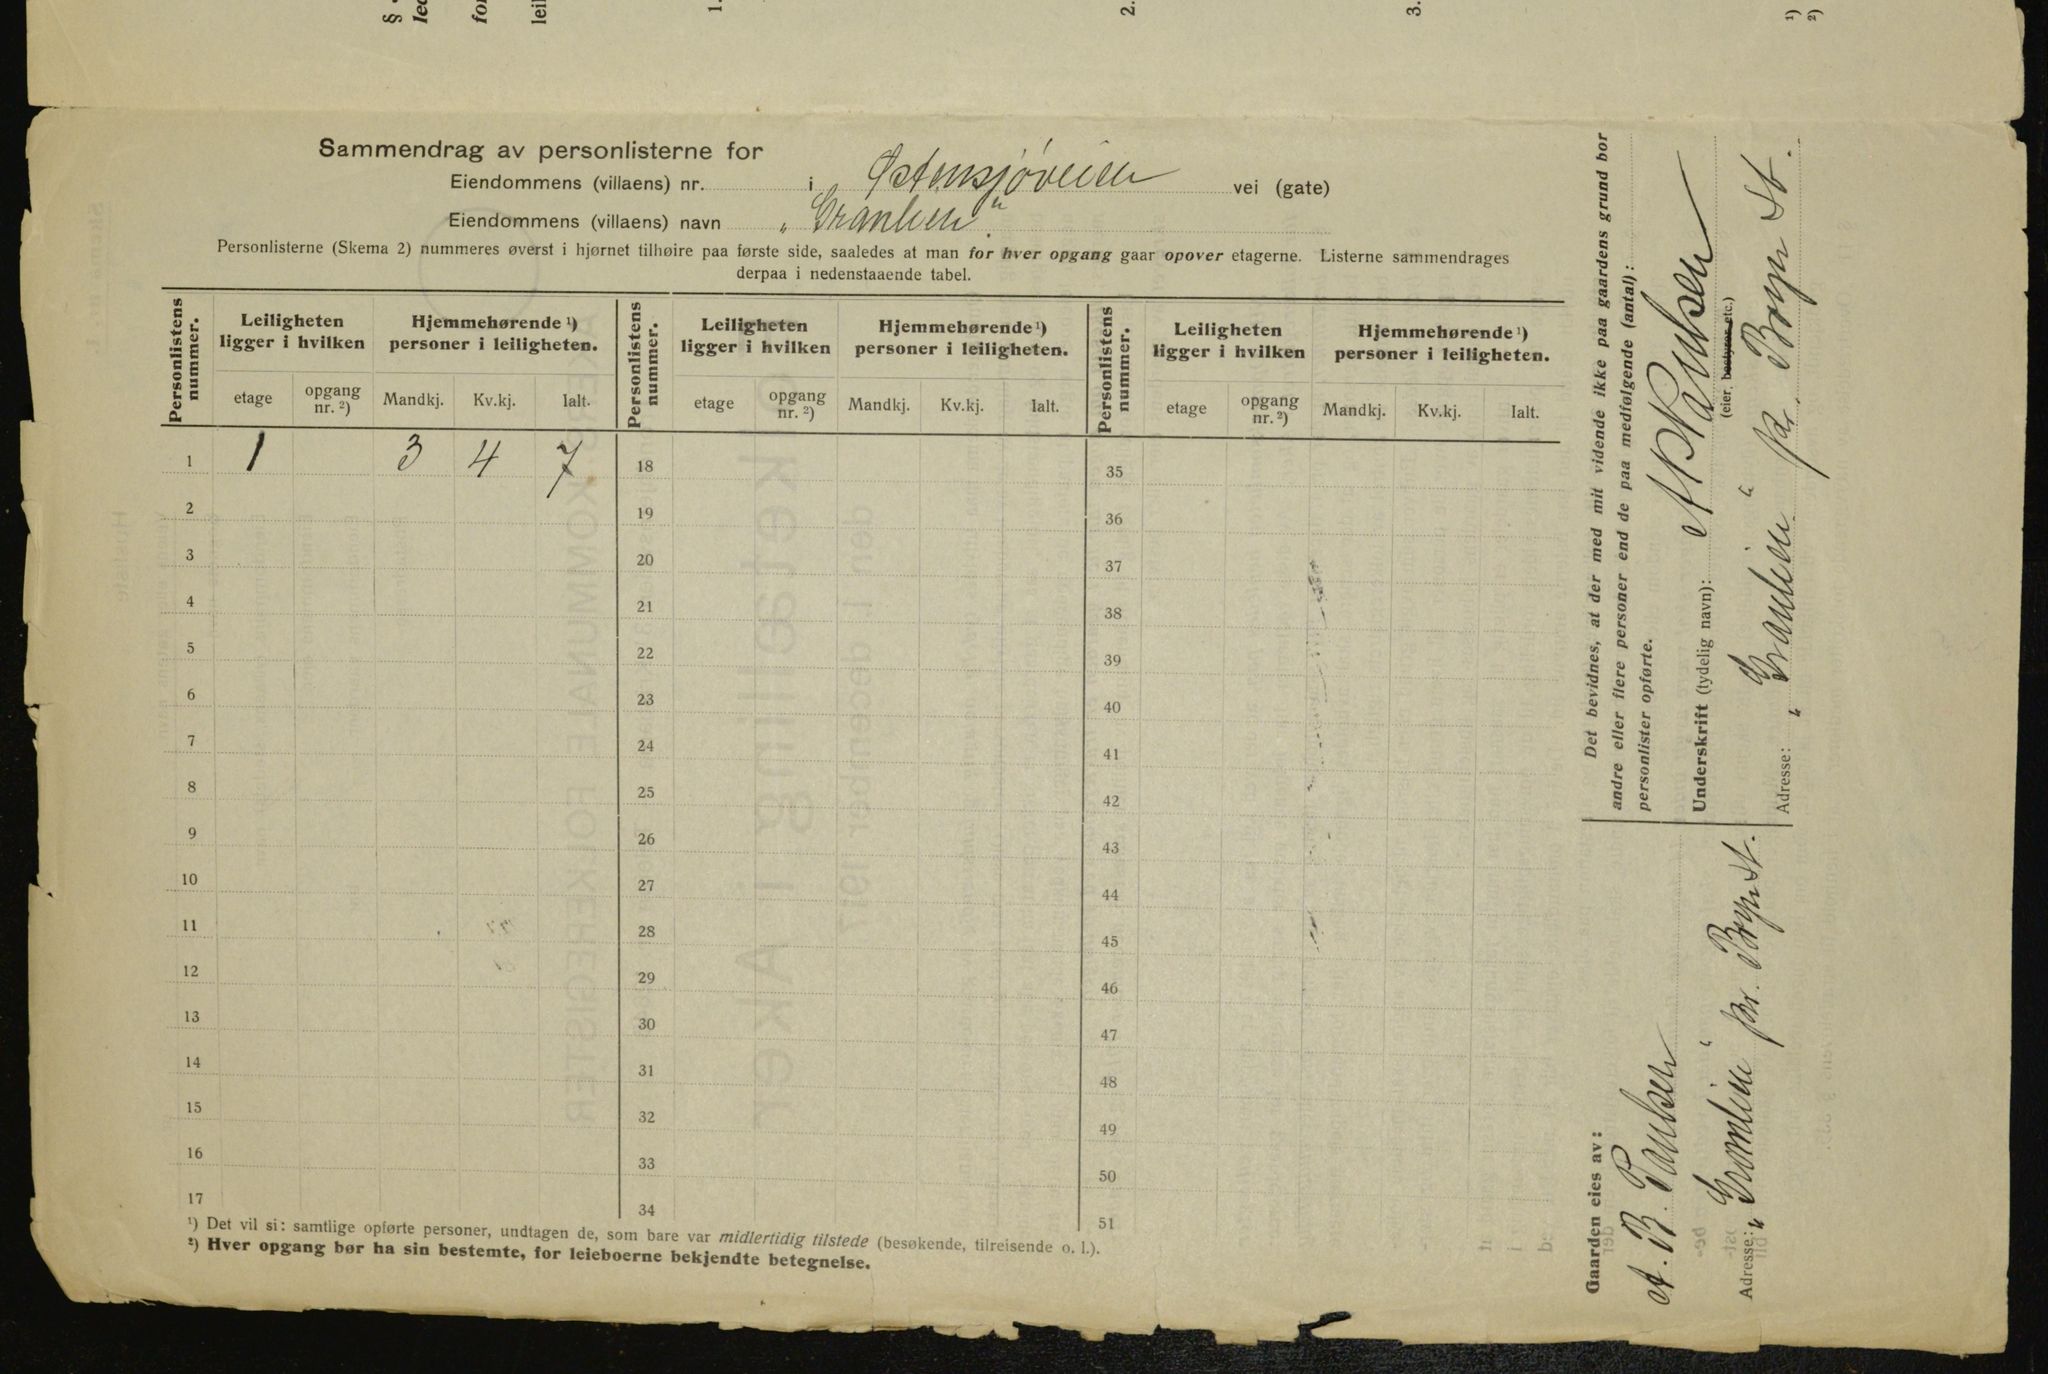 §
1.
2.
3.
1)
2)
Sammendrag av personlisterne for
Eiendommens (villaens) nr. i Østensjøveien vei (gate)
Eiendommens (villaens) navn „Granlien“.
Personlisterne (Skema 2) nummeres øverst i hjørnet tilhøire paa første side, saaledes at man for hver opgang gaar opover etagerne. Listerne sammendrages
derpaa i nedenstaaende tabel.
Personlistens nummer. Leiligheten ligger i hvilken Hjemmehørende ¹) personer i leiligheten. Personlistens nummer. Leiligheten ligger i hvilken Hjemmehørende ¹) personer i leiligheten. Personlistens nummer. Leiligheten ligger i hvilken Hjemmehørende ¹) personer i leiligheten.
etage opgang nr. ²) Mandkj. Kv.kj. Ialt. etage opgang nr. ²) Mandkj. Kv.kj. Ialt. etage opgang nr. ²) Mandkj. Kv.kj. Ialt.
1 1 3 4 7 18 35
2 19 36
3 20 37
4 21 38
5 22 39
6 23 40
7 24 41
8 25 42
9 26 43
10 27 44
11 28 45
12 29 46
13 30 47
14 31 48
15 32 49
16 33 50
17 34 51
¹) Det vil si: samtlige opførte personer, undtagen de, som bare var midlertidig tilstede (besøkende, tilreisende o. l.).
²) Hver opgang bør ha sin bestemte, for leieboerne bekjendte betegnelse.
Det bevidnes, at der med mit vidende ikke paa gaardens grund bor
andre eller flere personer end de paa medfølgende (antal):
personlister opførte.
Underskrift (tydelig navn): A B Paulsen
(eier, bestyrer etc.)
Adresse: „Granlien“ pr. Bryn St.
Gaarden eies av:
A. B. Paulsen
Adresse: „Granlien“ pr. Bryn St.